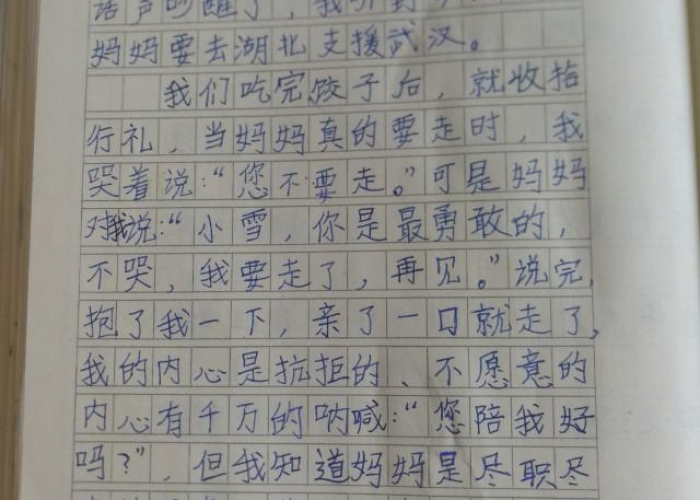 话声吵醒了，我听到
妈妈要去湖北支援武汉。
我们吃完饺子后，就收拾
行礼，当妈妈真的要走时，我
哭着说：“您不要走。”可是妈妈
对我说：“小雪，你是最勇敢的，
不哭，我要走了，再见。”说完，
抱了我一下，亲了一口就走了，
我的内心是抗拒的、不愿意的
内心有千万的呐喊：“您陪我好
吗？”，但我知道妈妈是尽职尽